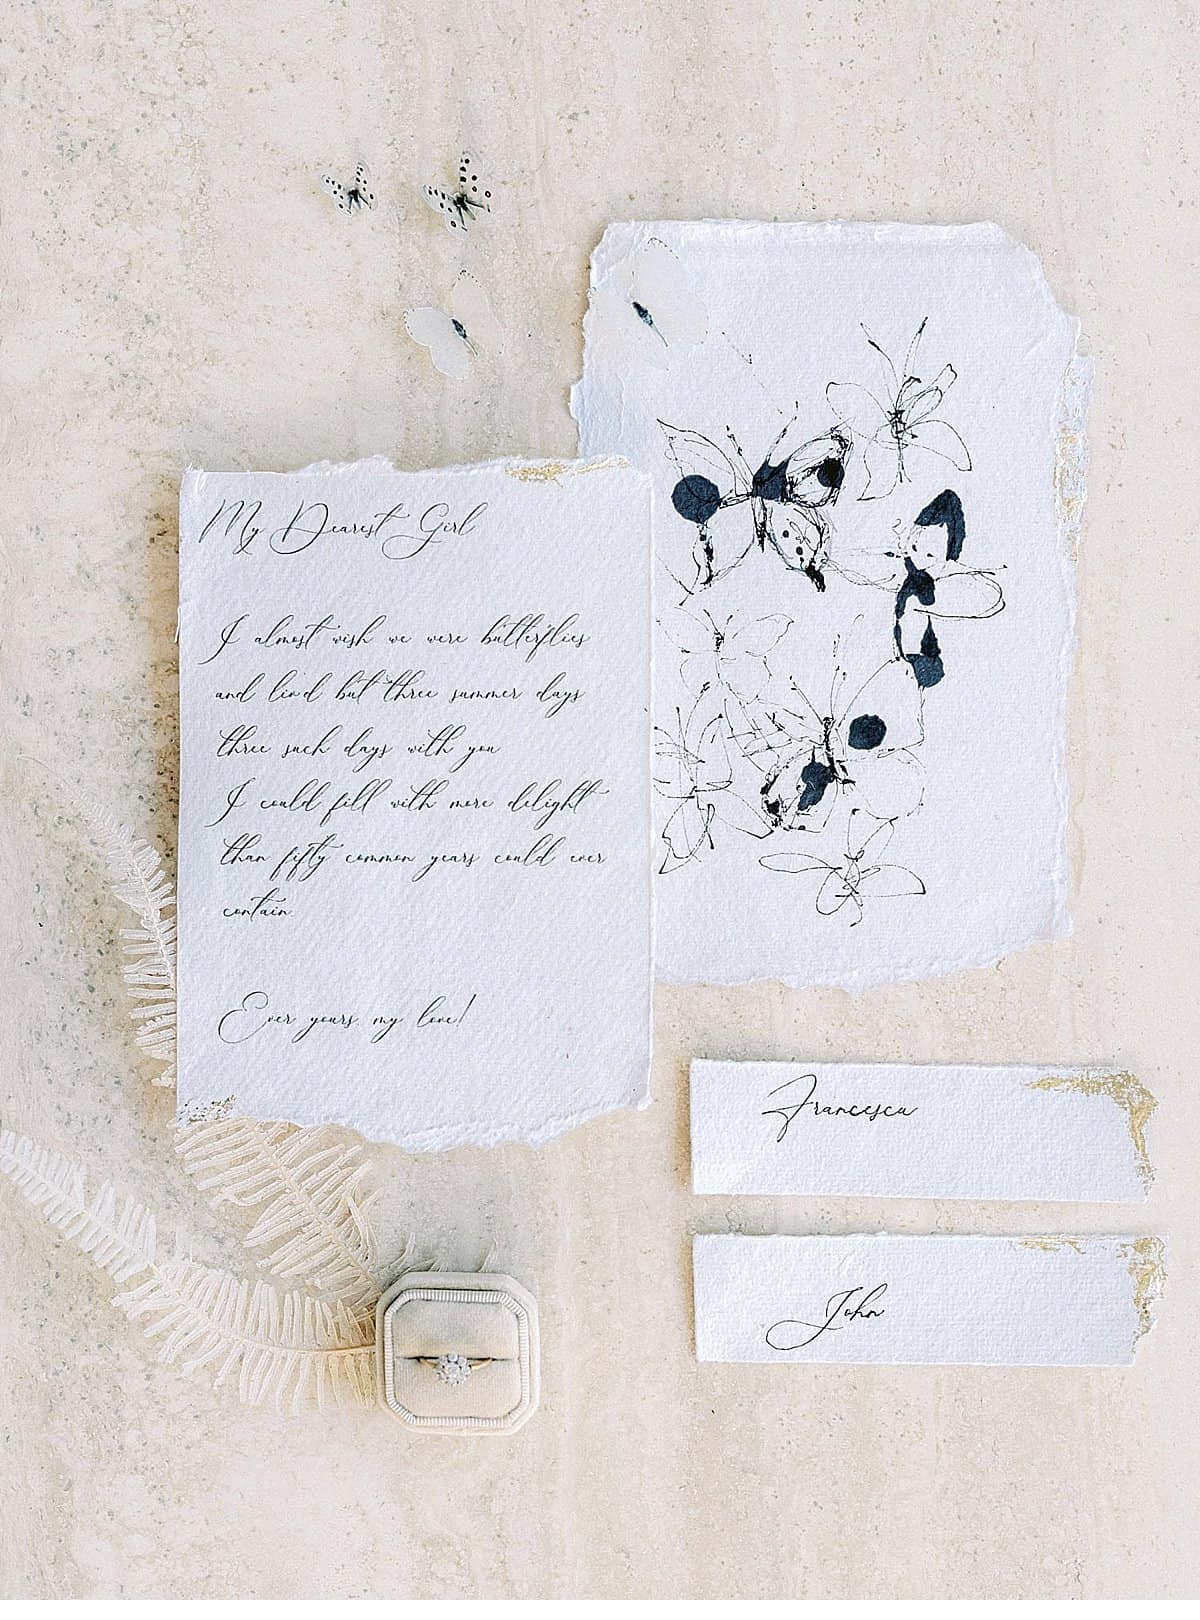 My Dearest Girl
I almost wish we were butterflies
and liv'd but three summer days
three such days with you
I could fill with more delight
than fifty common years could ever
contain
Ever yours my love!
Francesca
John